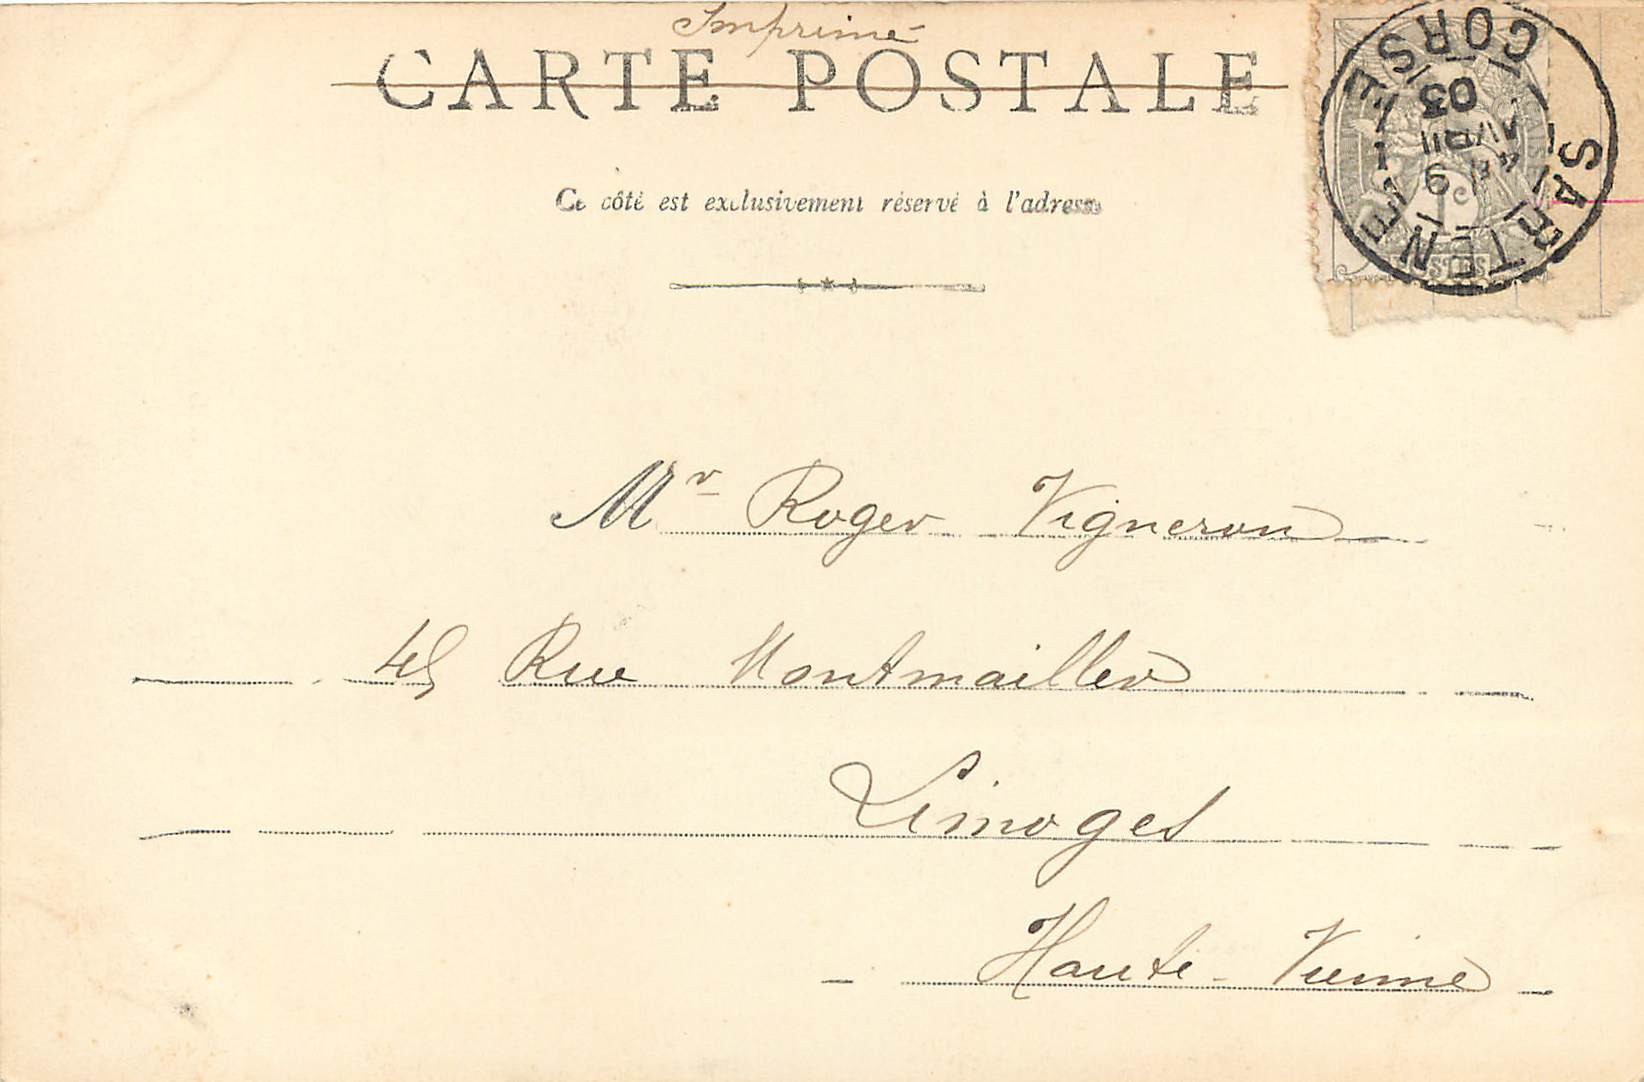 Imprimé
CARTE POSTALE
Ce côté est exclusivement réservé à l'adresse
SARTENE CORSE
4E
9
AVRIL
03
1c
POSTES
Mr Roger Vigneron
45 Rue Montmailler
Limoges
Haute-Vienne